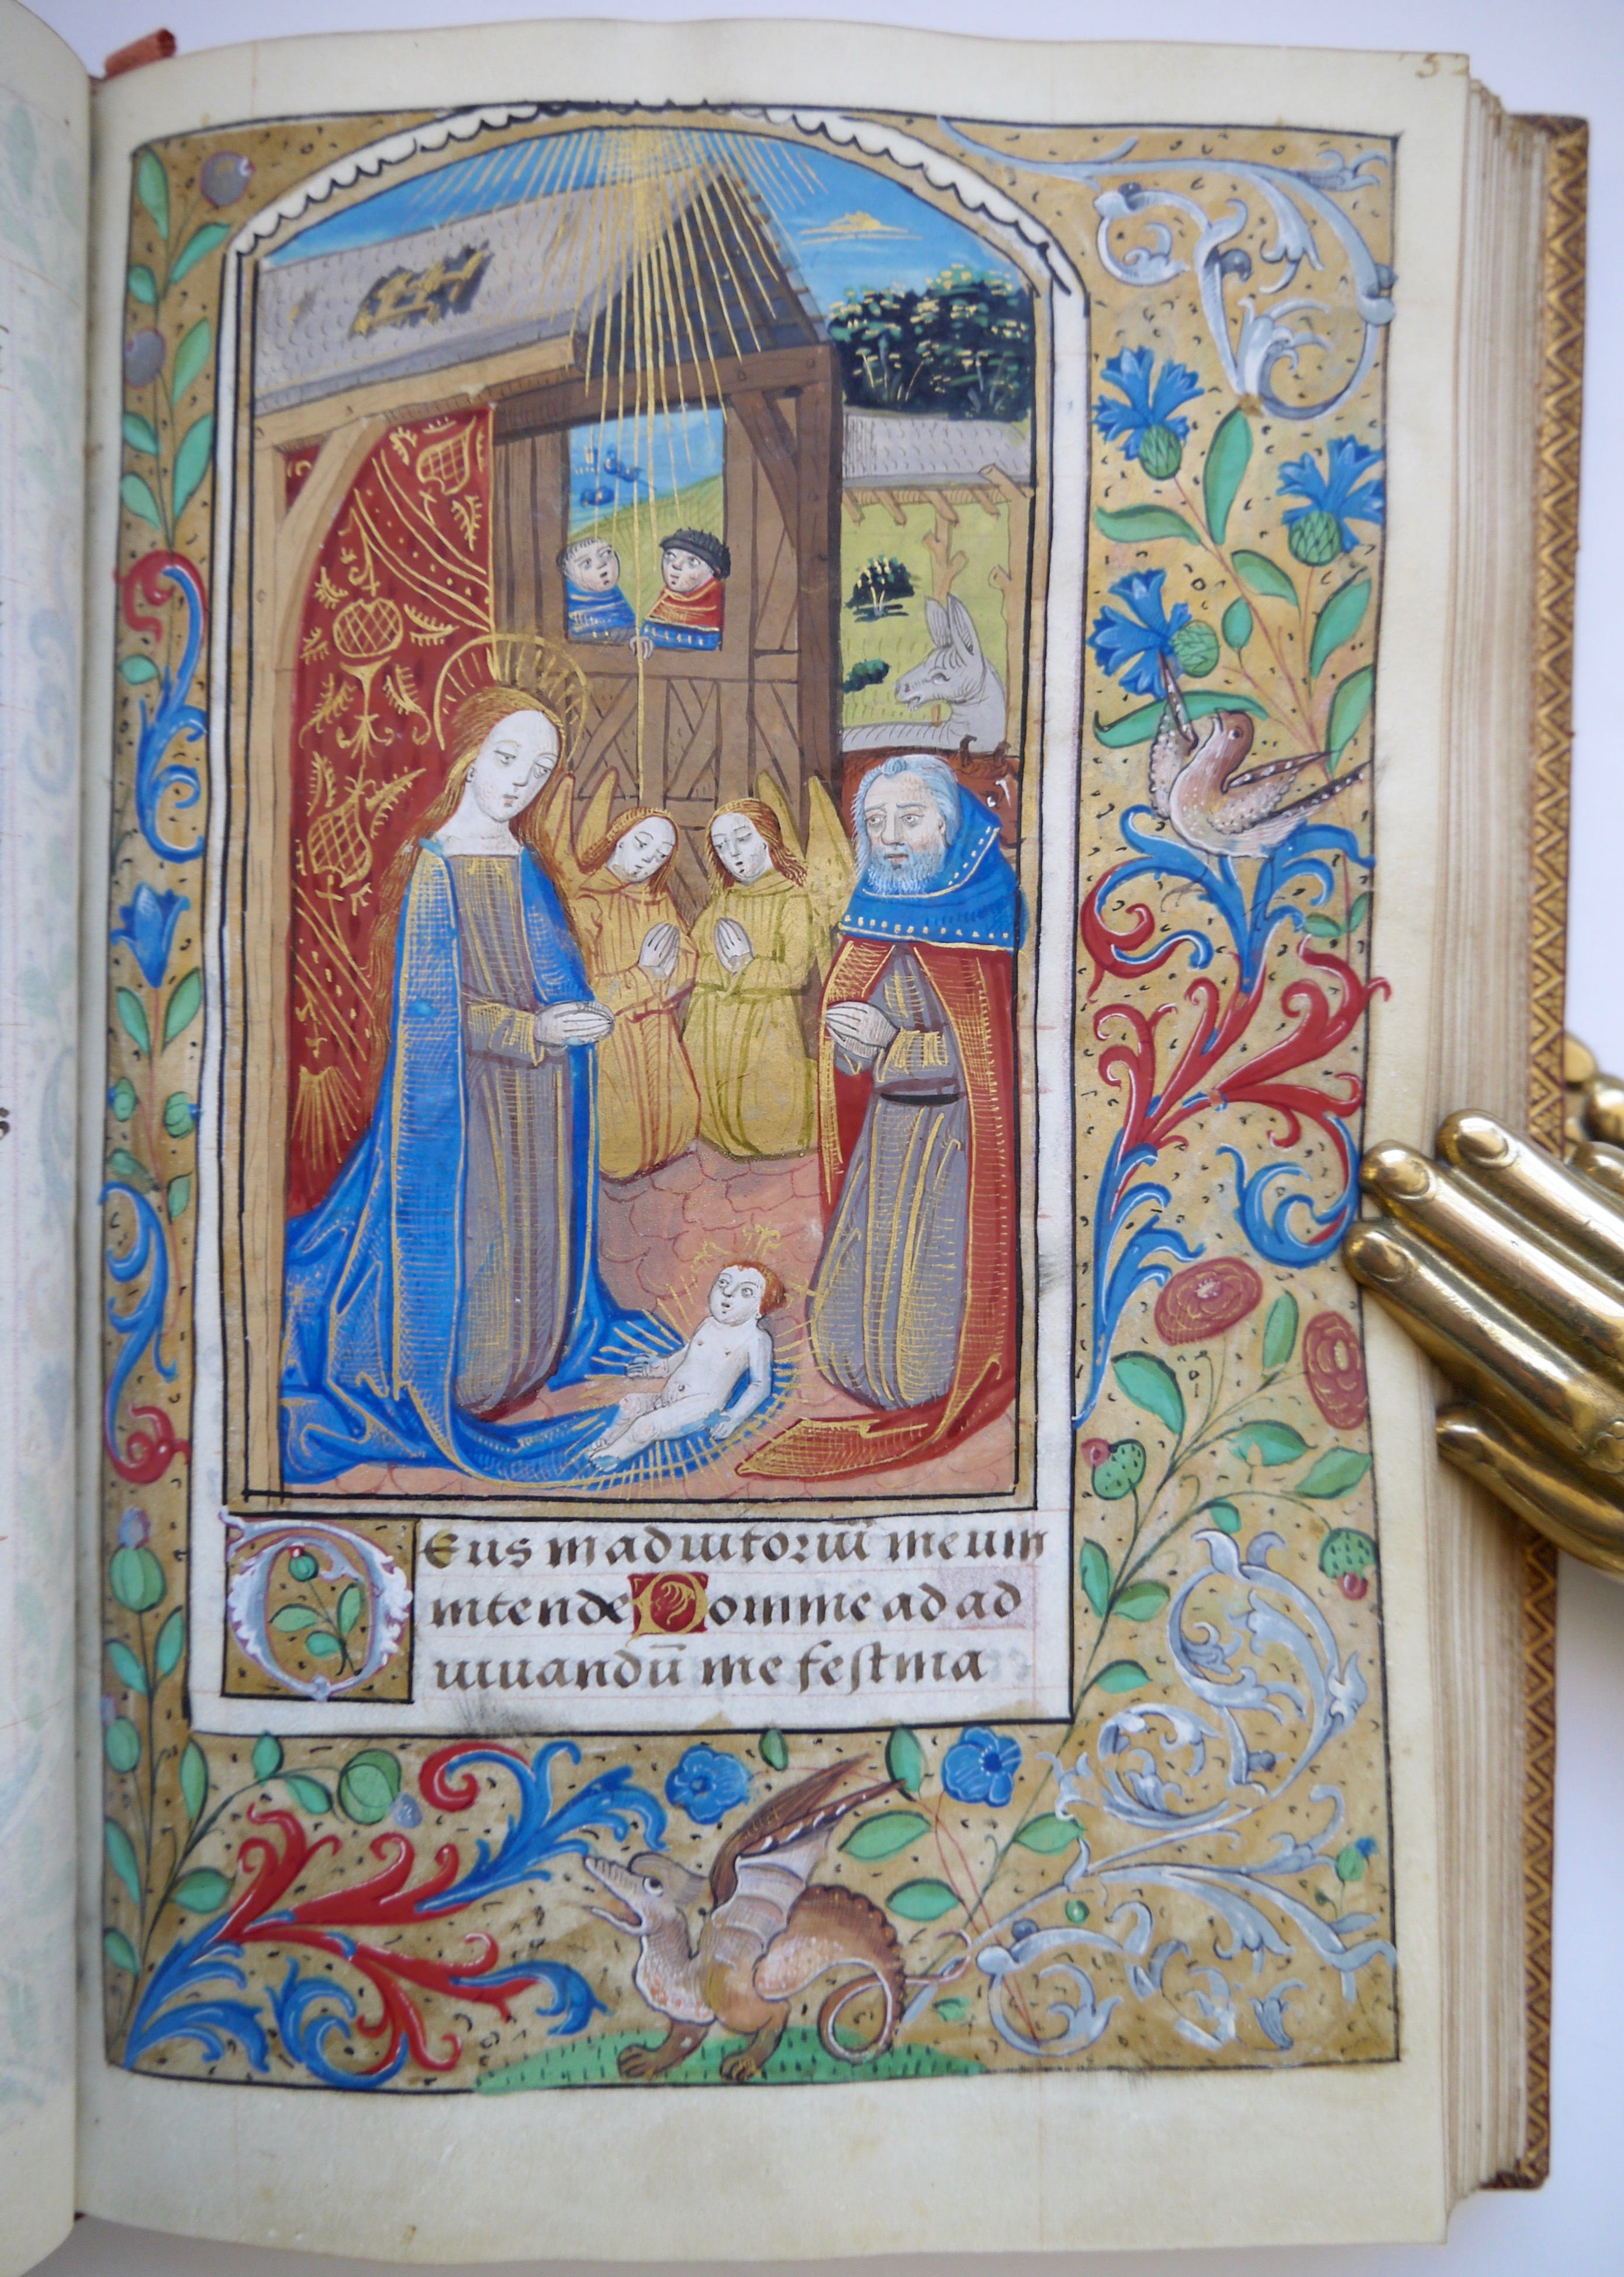 DEus in adiutoriū meum
intende Domine ad ad
iuuandū me festina